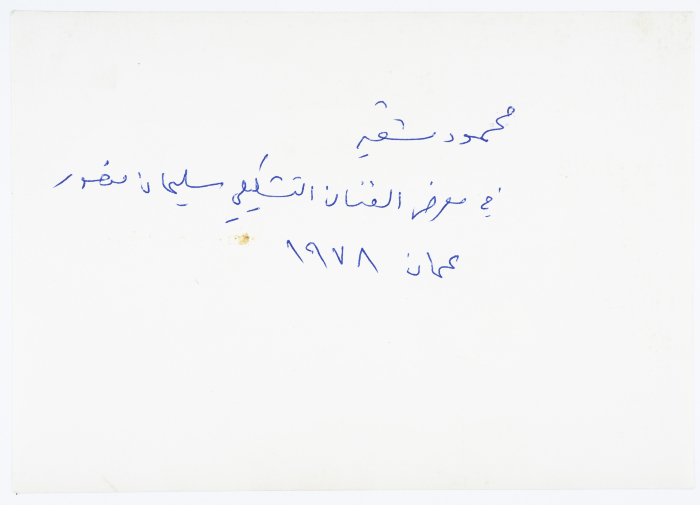 محمود شقير
في معرض الفنان التشكيلي سليمان منصور
عمان ١٩٧٨